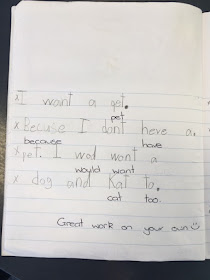 x I want a get.
pet
x Becuse I don't heve a.
because have
x pet. I wod wont a
would want
x dog and Kat to.
cat too.
Great work on your own☺